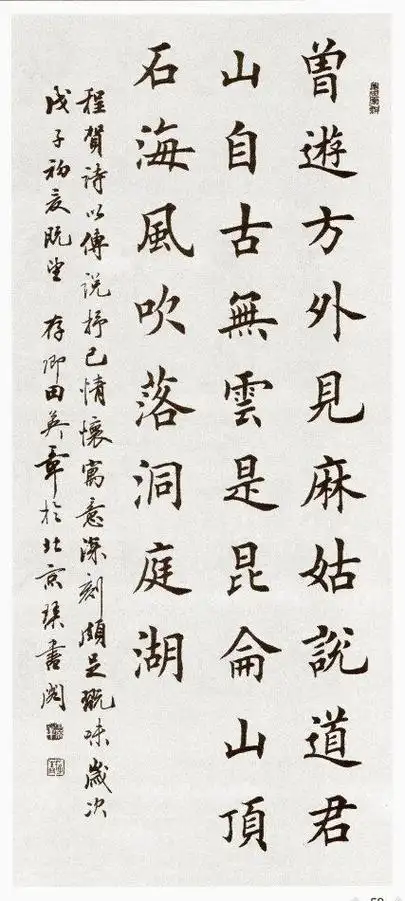 曾遊方外見麻姑說道君
山自古無雲是昆侖山頂
石海風吹落洞庭湖
程賀詩以傳說抒己情懷寓意深刻頗足翫味歲次
戊子初夏既望 存卿田英章於北京書閣